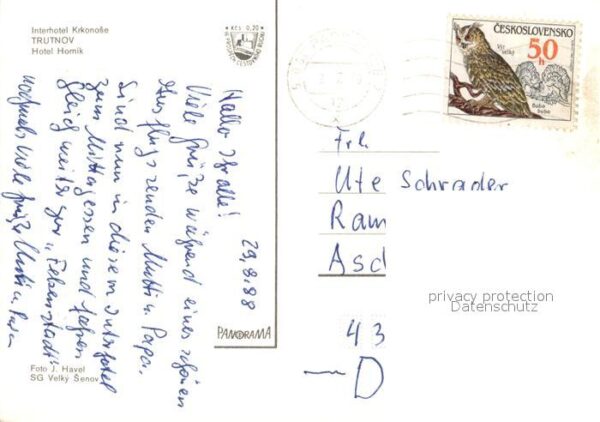 Interhotel Krkonoše
TRUTNOV
Hotel Horník
Kčs 0,20
Hallo Ihr alle! 29.8.88
Viele Grüße während eines schönen
Ausfluges senden Mutti u. Papa.
Sind nun in diesem Interhotel
zum Mittagessen und fahren
gleich weiter zur "Felsenstadt"
nochmals viele Grüße Mutti u. Papa
Foto J. Havel
SG Velký Šenov
PANORAMA
ČESKOSLOVENSKO
50 h
Výr velký
Bubo bubo
Frl.
Ute Schrader
Ram
Asd
43
— D
privacy protection
Datenschutz